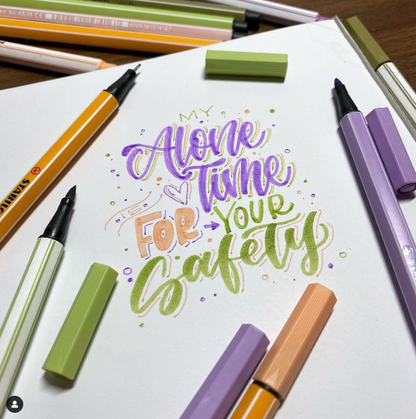 MY
Alone
Time
IS
FOR YOUR
Safety
STABILO